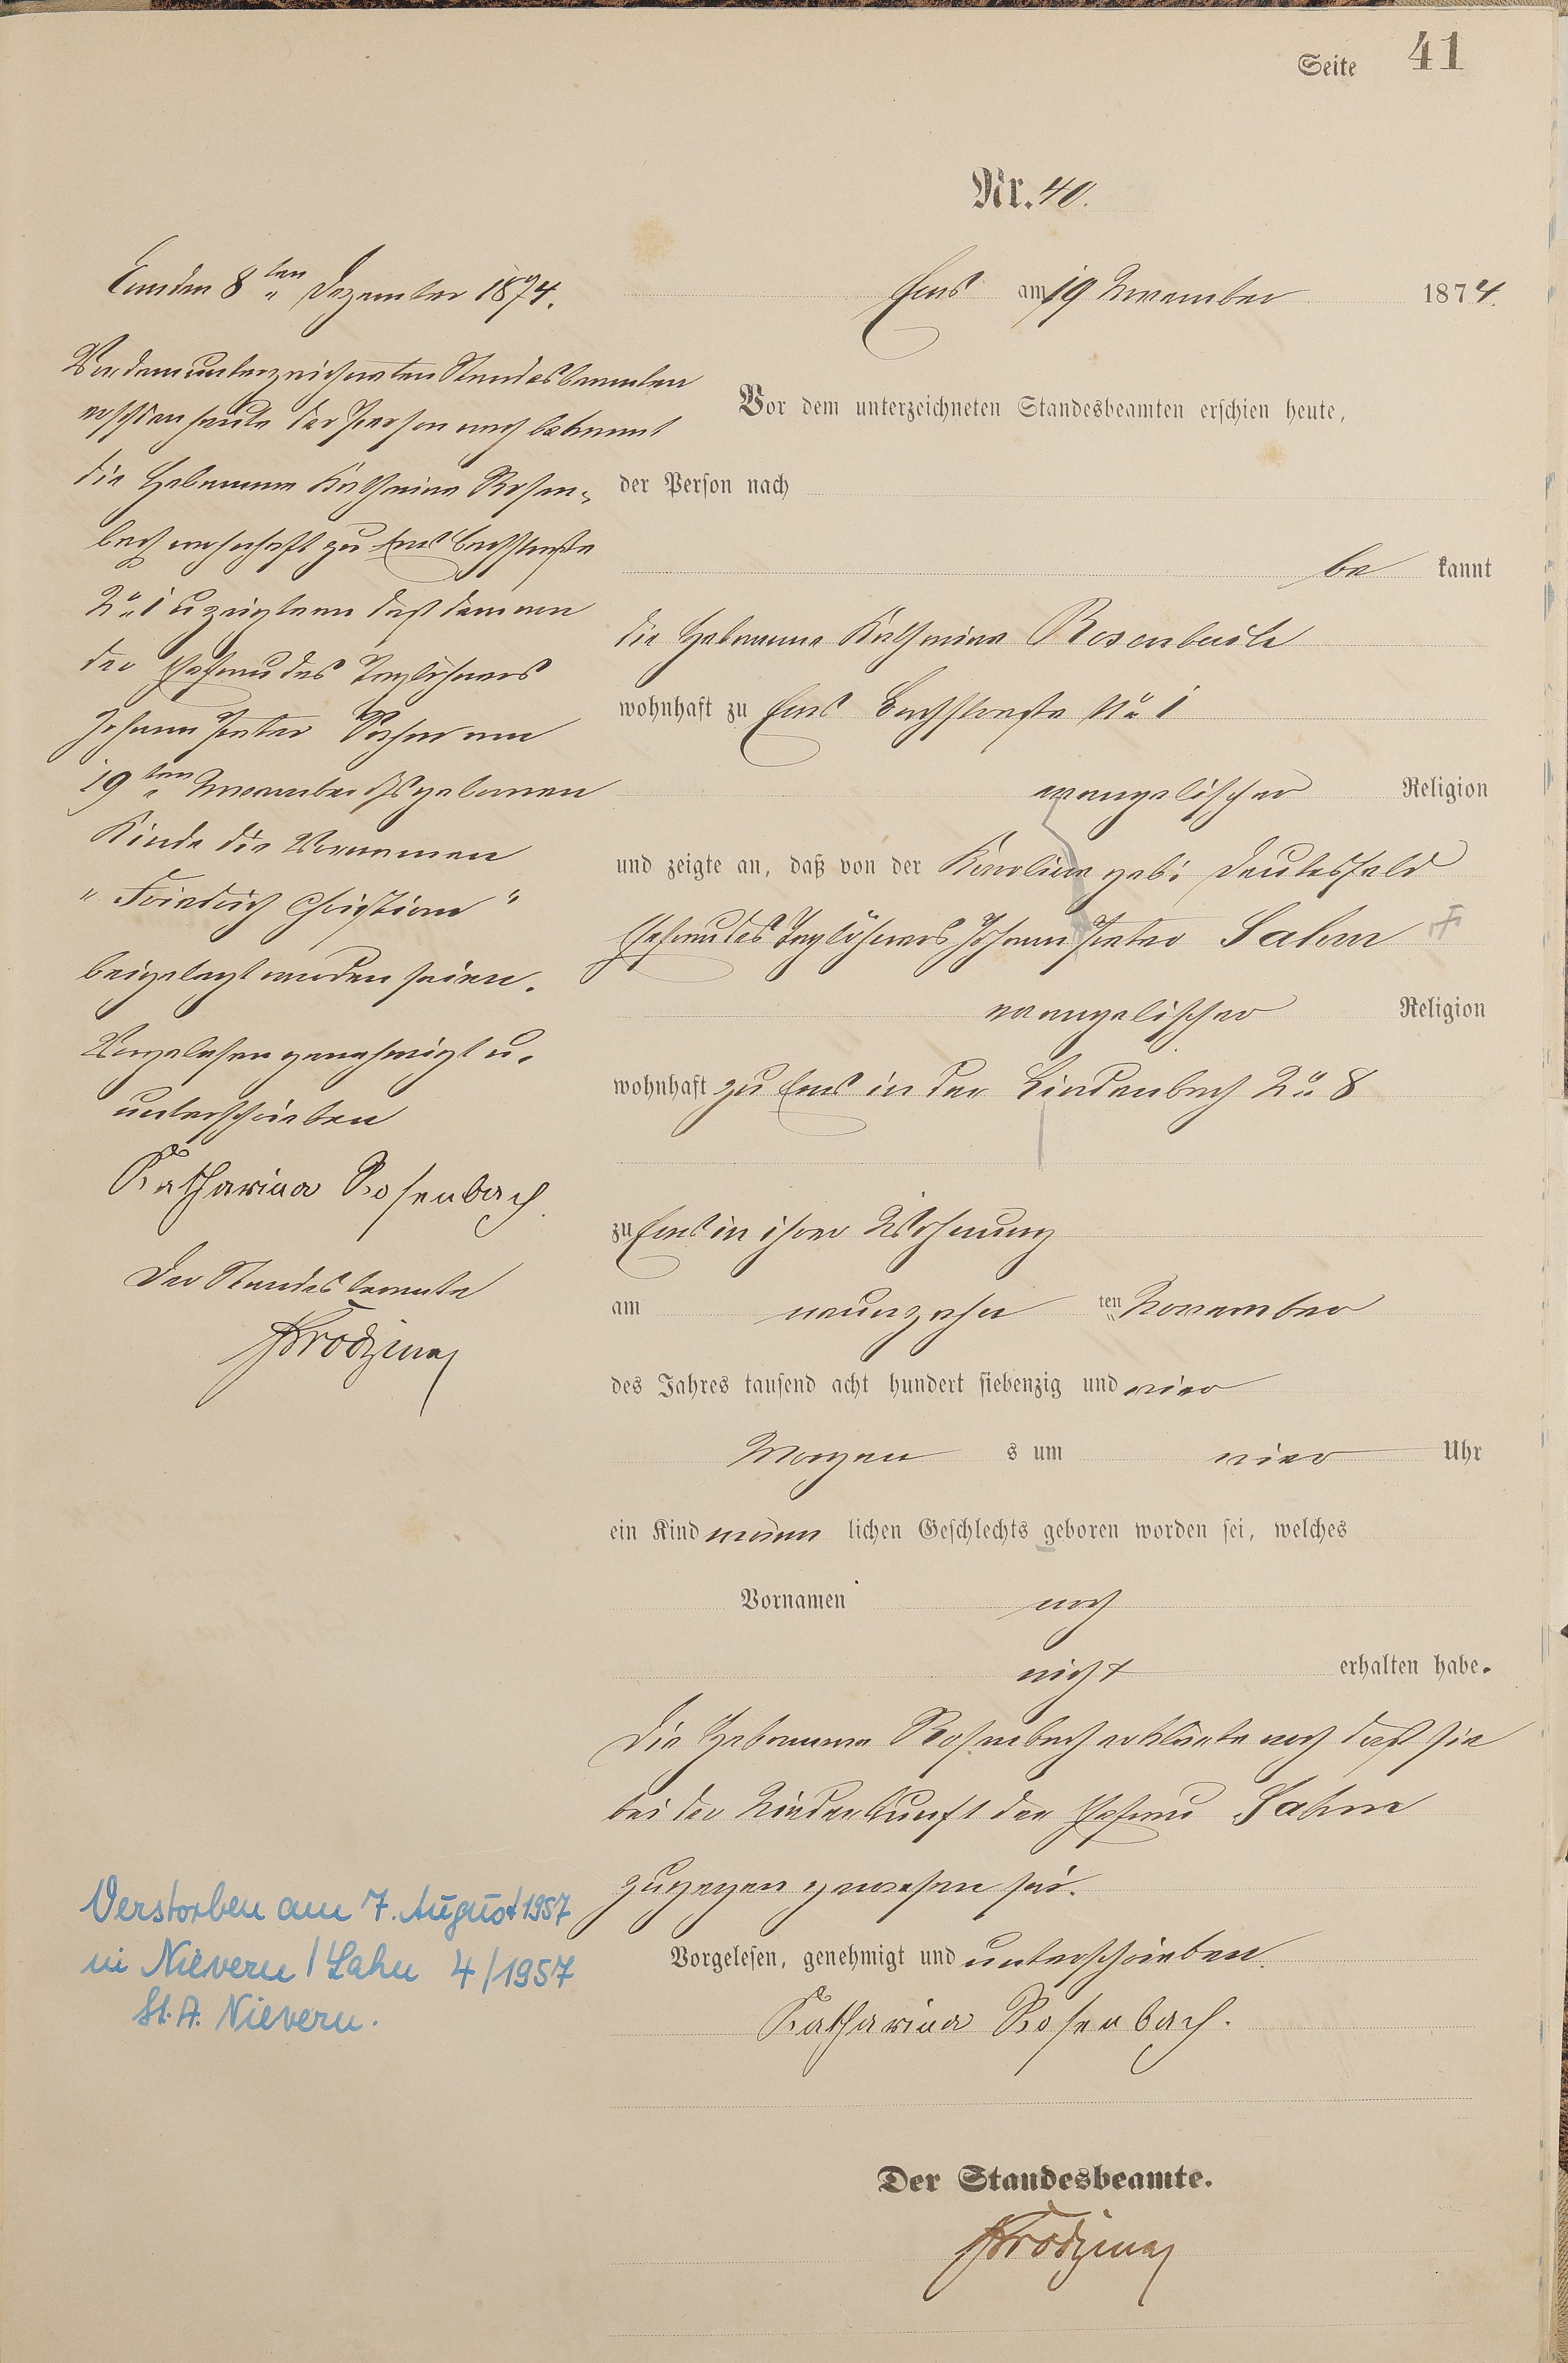 Seite 41
Nr. 40.
Ems am 19 November 1874.
Vor dem unterzeichneten Standesbeamten erschien heute,
der Person nach
bekannt
die Hebamme Katharina Rosenbach
wohnhaft zu Ems Bachstraße No 1
evangelischer Religion
und zeigte an, daß von der Karoline geb: Deutesfeld
Ehefrau des Taglöhners Johann Peter Sahm
evangelischer Religion
wohnhaft zu Ems in der Lindenbach No 8
zu Ems in ihrer Wohnung
am neunzehn ten November
des Jahres tausend acht hundert siebenzig und vier
Morgens um vier Uhr
ein Kind männlichen Geschlechts geboren worden sei, welches
Vornamen noch
nicht erhalten habe.
Die Hebamme Rosenbach erklärte noch daß sie
bei der Niederkunft der Ehefrau Sahm
zugegen gewesen sei.
Vorgelesen, genehmigt und unterschrieben.
Katharina Rosenbach.
Der Standesbeamte.
Ems den 8ten Dezember 1874.
Vor dem unterzeichneten Standesbeamten
erschien heute der Person nach bekannt
die Hebamme Katharina Rosen-
bach wohnhaft zu Ems Bachstraße
No 1 u zeigte an daß dem von
der Ehefrau des Taglöhners
Johann Peter Sahm am
19ten November ds geborenen
Kinde die Vornamen
"Friedrich Christian"
beigelegt worden seien.
Vorgelesen genehmigt u.
unterschrieben
Katharina Rosenbach.
Der Standesbeamte
Verstorben am 7. August 1957
in Nievern / Lahn 4/1957
St. A. Nievern.